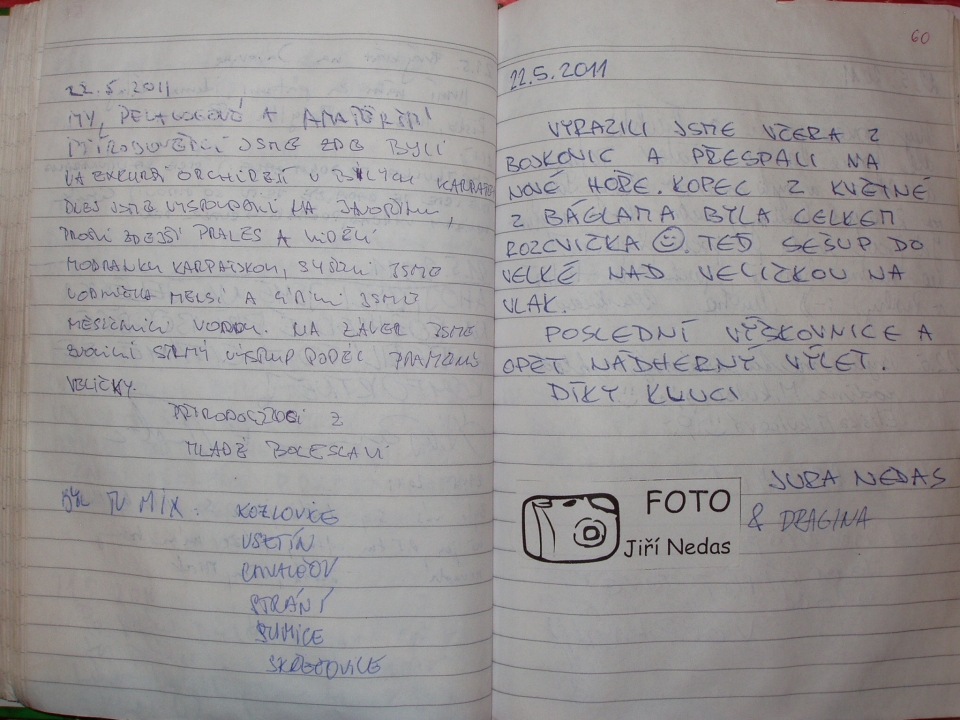 22.5.2011
MY, A AMATÉRŠTÍ
PŘÍRODOVĚDCI JSME ZDE BYLI
NA EXKURZI ORCHIDEJÍ V BÍLÝCH KARPATECH
DNES JSME VYSTOUPALI NA JAVOŘINU,
PROŠLI ZDEJŠÍ PRALES A VIDĚLI
MODRANKU KARPATSKOU, SLYŠELI JSME
LEJSKA MALÉHO A JSME
MĚSÍČNICI VONNOU. NA ZÁVĚR JSME
STRMÝ VÝSTUP PODÉL PRAMENŮ
VELIČKY.
Z
MLADÉ BOLESLAVI
BYL TU MIX: KOZLOVICE
VSETÍN
STRÁNÍ
ŠUMICE
60
22.5.2011
VYRAZILI JSME VČERA Z
BOJKOVIC A PŘESPALI NA
NOVÉ HOŘE. KOPEC Z KVĚTNÉ
Z BÁGLAMA BYLA CELKEM
ROZCVIČKA ☺. TEĎ SEŠUP DO
VELKÉ NAD VELIČKOU NA
VLAK.
POSLEDNÍ VÝŠKOVNICE A
OPĚT NÁDHERNÝ VÝLET.
DÍKY KLUCI
JURA NEDAS
& DRAGINA
FOTO
Jiří Nedas